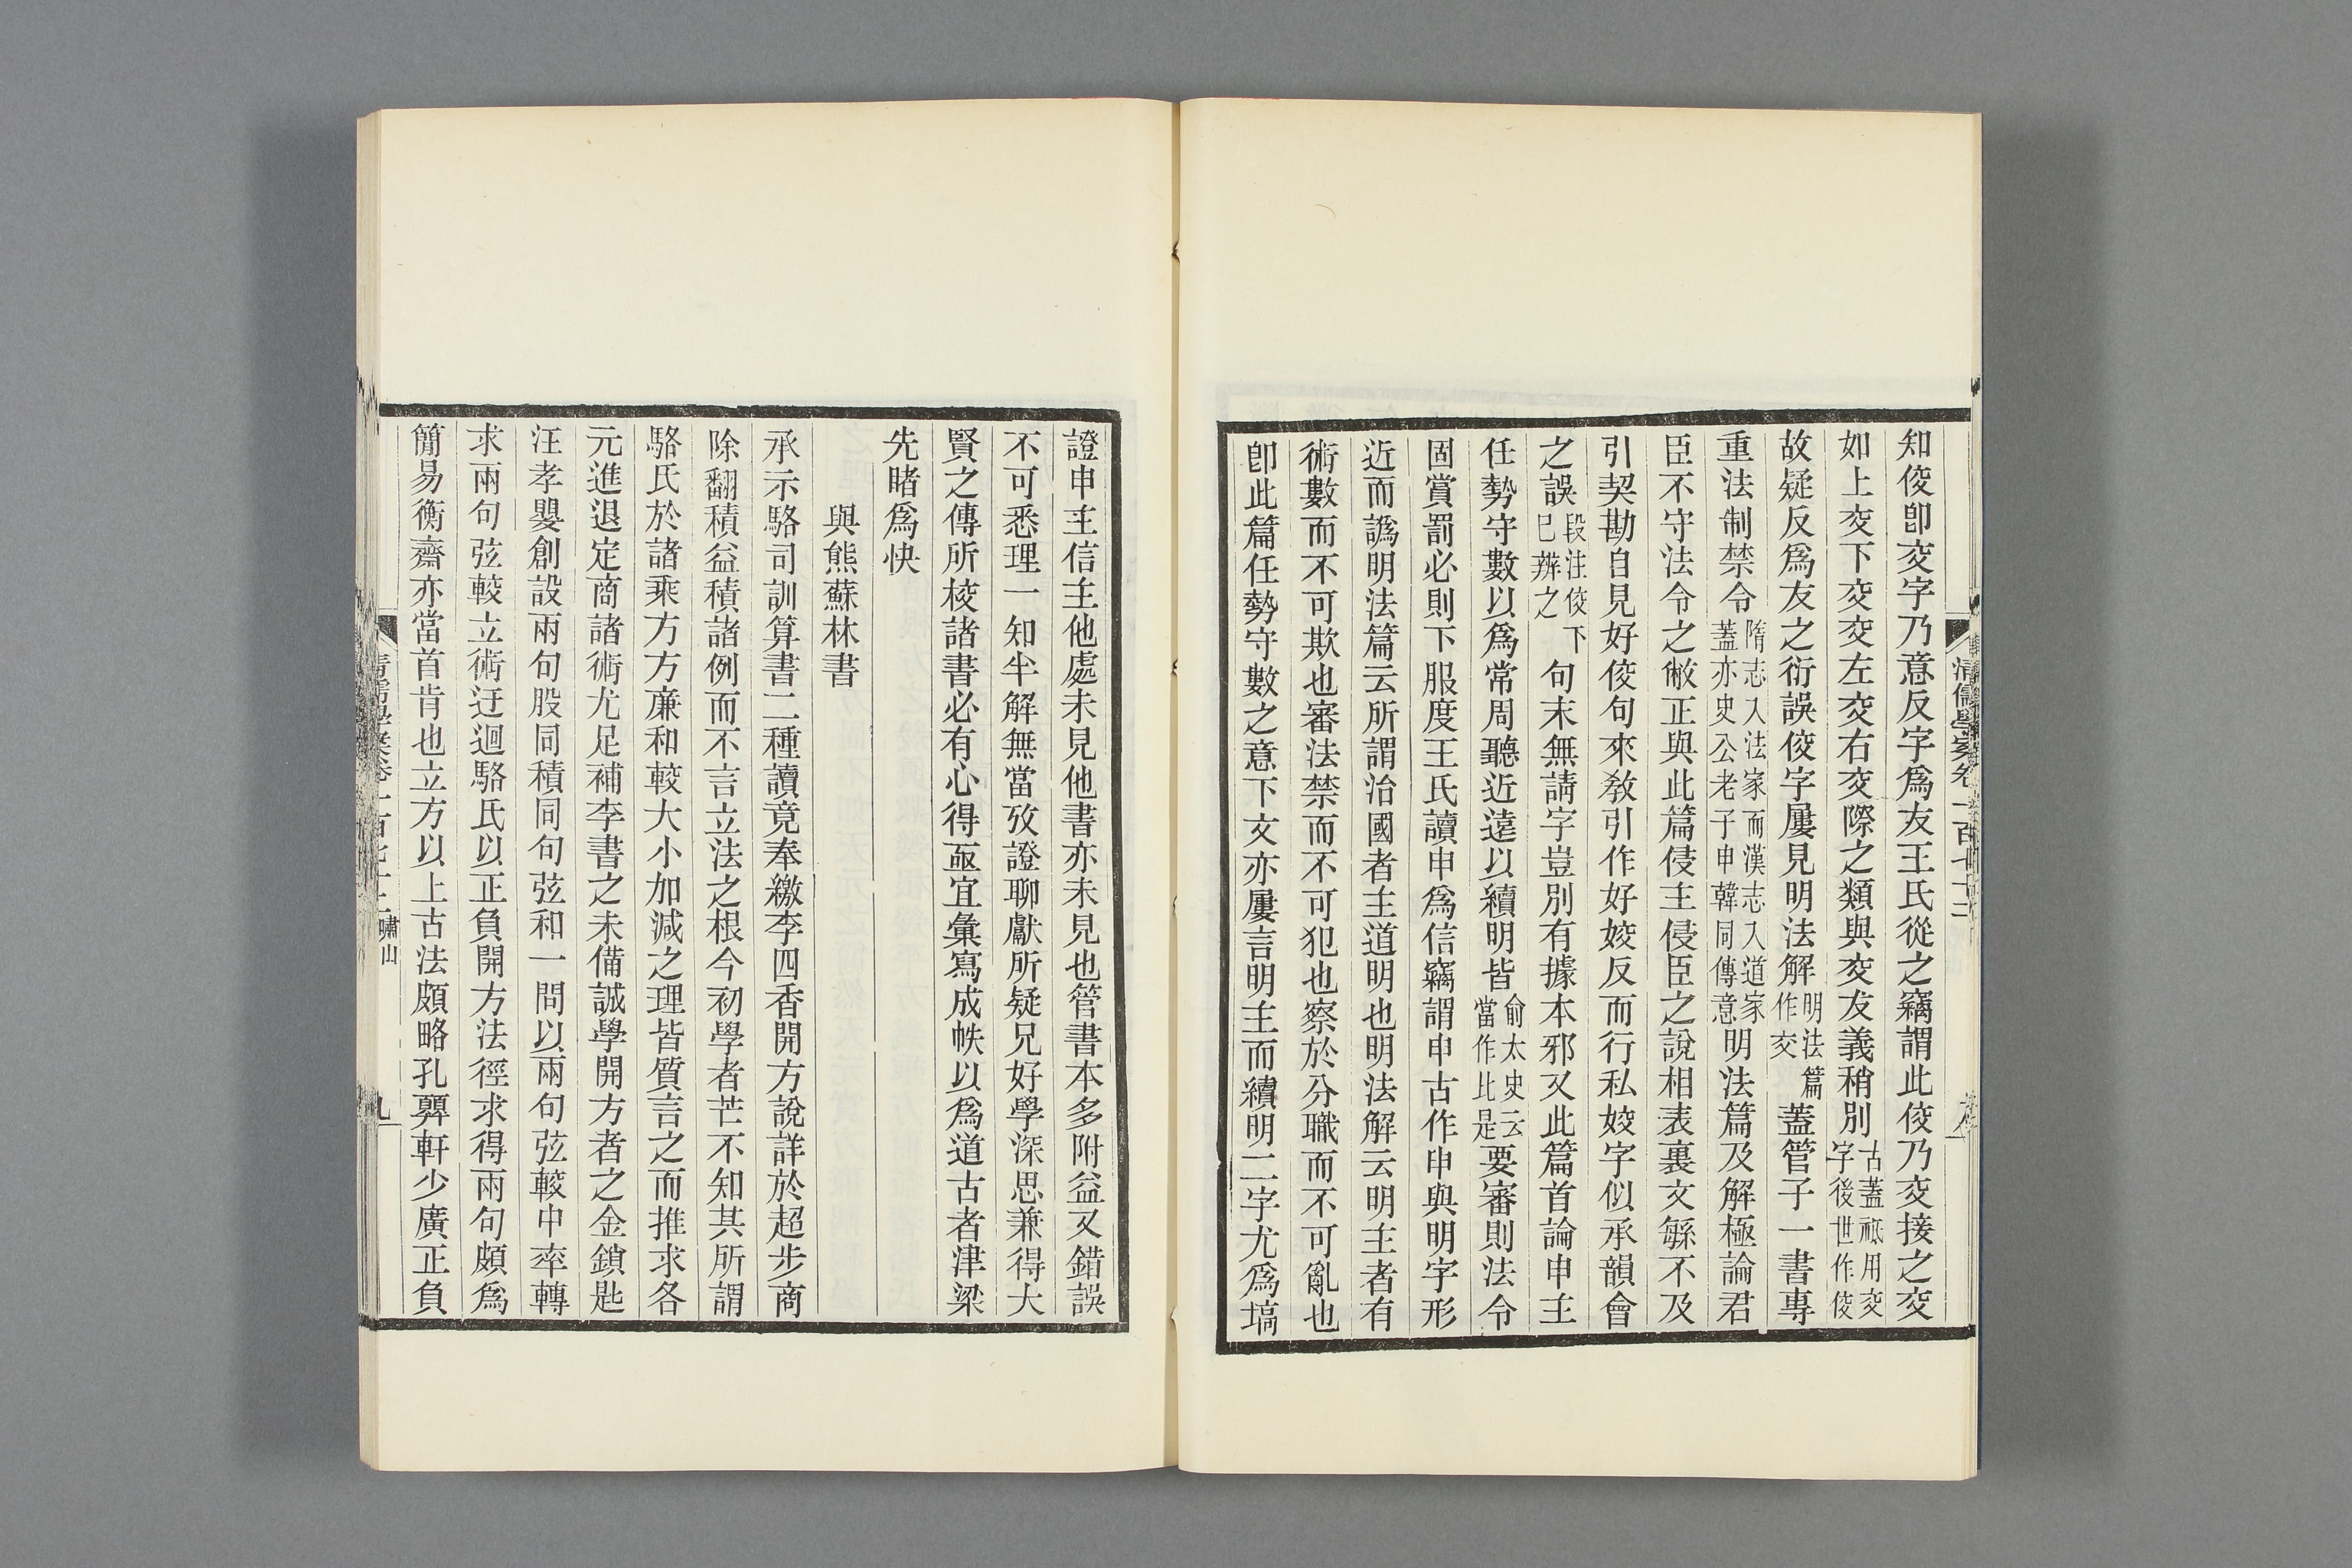 知佼卽交字乃意反字爲友王氏從之竊謂此佼乃交接之交
如上交下交交左交右交際之類與交友義稍別古蓋祗用交字後世作佼
故疑反爲友之衍誤佼字屢見明法解明法篇作交蓋管子一書專
重法制禁令隋志入法家而漢志入道家蓋亦史公老子申韓同傳意明法篇及解極論君
臣不守法令之敝正與此篇侵主侵臣之說相表裏文繇不及
引契勘自見好佼句來敎引作好姣反而行私姣字似承韻會
之誤段注佼下已辨之句末無請字豈別有據本邪又此篇首論申主
任勢守數以爲常周聽近遠以續明皆俞太史云當作比是要審則法令
固賞罰必則下服度王氏讀申爲信竊謂申古作申與明字形
近而譌明法篇云所謂治國者主道明也明法解云明主者有
術數而不可欺也審法禁而不可犯也察於分職而不可亂也
卽此篇任勢守數之意下文亦屢言明主而續明二字尤爲塙
清儒學案卷一百七十三
證申主信主他處未見他書亦未見也管書本多附益又錯誤
不可悉理一知半解無當攷證聊獻所疑兄好學深思兼得大
賢之傳所校諸書必有心得亟宜彙寫成帙以爲道古者津梁
先睹爲快
與熊蘇林書
承示駱司訓算書二種讀竟奉繳李四香開方說詳於超步商
除翻積益積諸例而不言立法之根今初學者芒不知其所謂
駱氏於諸乘方方廉和較大小加減之理皆質言之而推求各
元進退定商諸術尤足補李書之未備誠學開方者之金鎖匙
汪孝嬰創設兩句股同積同句弦和一問以兩句弦較中率轉
求兩句弦較立術迂迴駱氏以正負開方法徑求得兩句頗爲
簡易衡齋亦當首肯也立方以上古法頗略孔顨軒少廣正負
嘯山
九